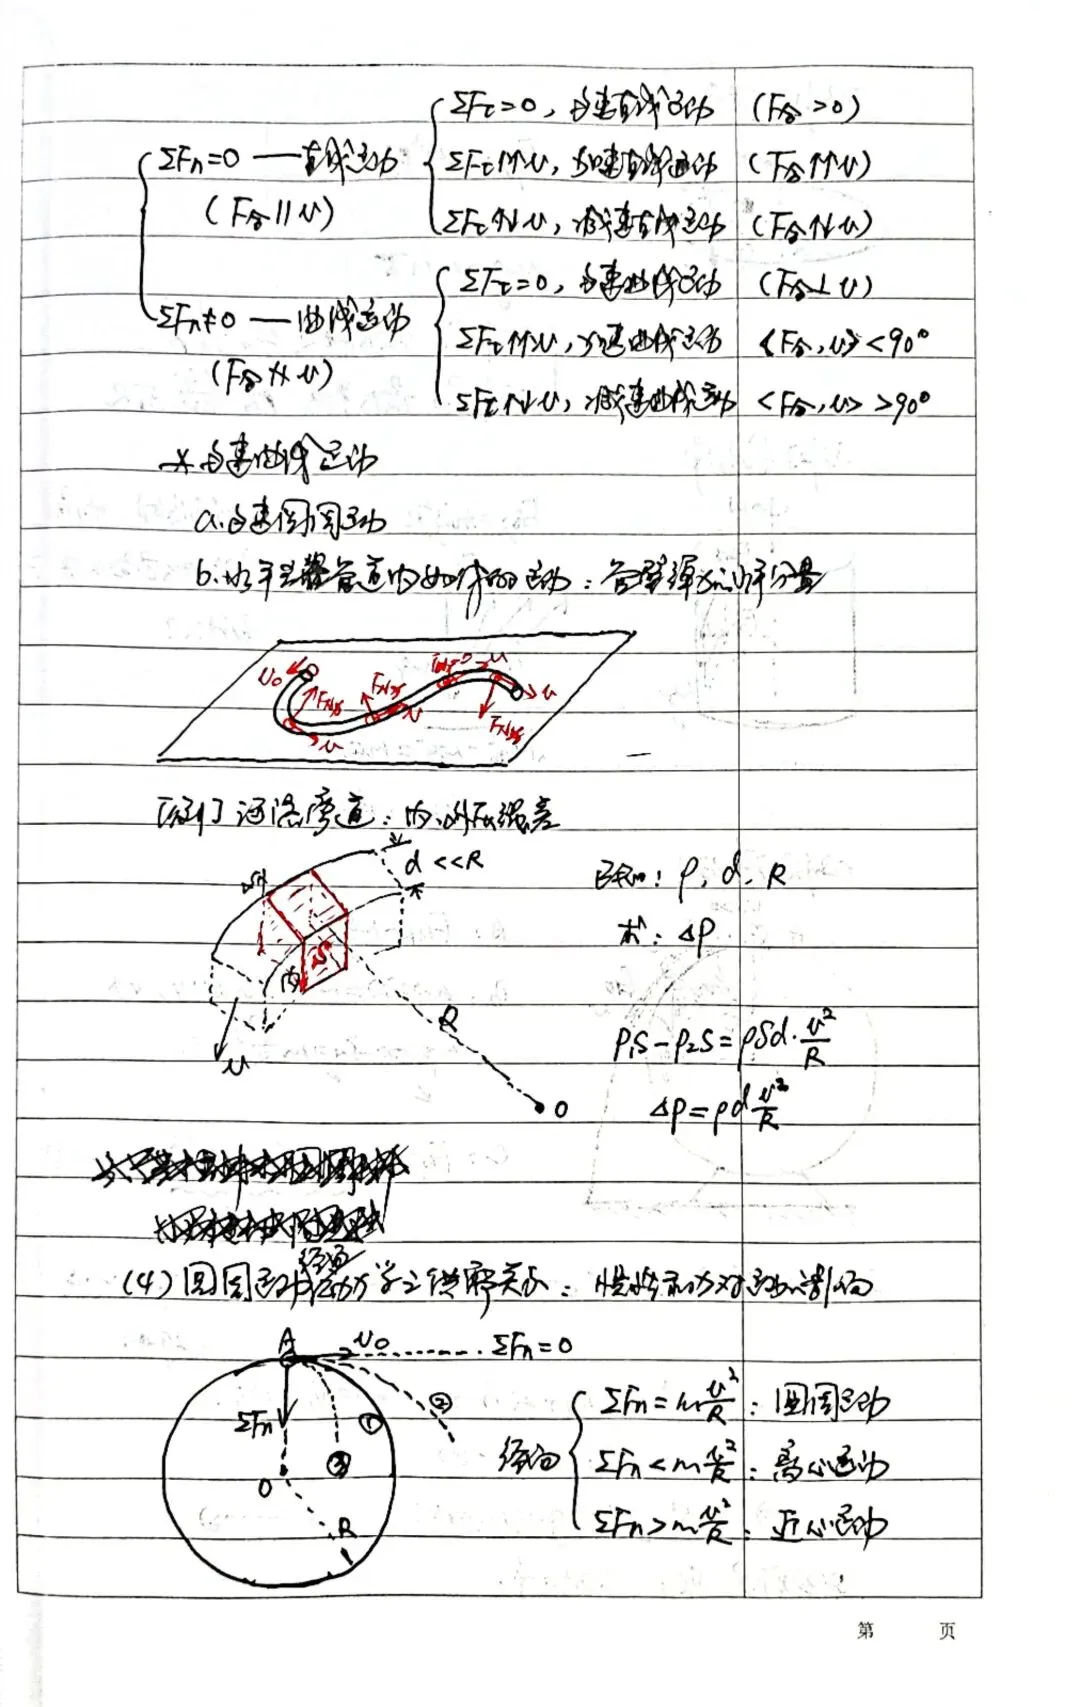 ΣFₙ=0 — 直线运动
(F合∥v)
ΣFτ=0，匀速直线运动 (F合=0)
ΣFτ↑↑v，加速直线运动 (F合↑↑v)
ΣFτ↑↓v，减速直线运动 (F合↑↓v)
ΣFₙ≠0 — 曲线运动
(F合∦v)
ΣFτ=0，匀速曲线运动 (F合⊥v)
ΣFτ↑↑v，加速曲线运动 <F合,v> <90°
ΣFτ↑↓v，减速曲线运动 <F合,v> >90°
※匀速曲线运动
a.匀速圆周运动
b.水平光滑管道内的运动：管壁弹力的水平分量
v₀
v
[例] 河流弯道：内、外压强差
d<<R
已知：ρ、d、R
求：ΔP
外
内
R
v
O
P₁S-P₂S=ρSd·v²/R
ΔP=ρd v²/R
(4)圆周运动径向动力学之供需关系：
A v₀ ΣFₙ=0
ΣFₙ ① ② ③
O
R
径向
ΣFₙ=m v²/R：圆周运动
ΣFₙ<m v²/R：离心运动
ΣFₙ>m v²/R：近心运动
第 页